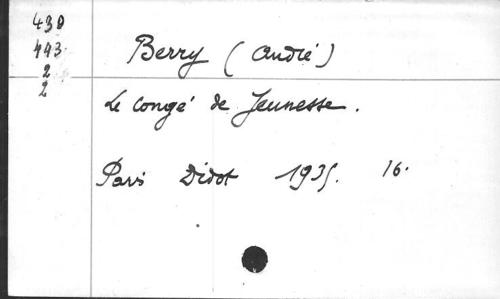 430
443
2
2
Berry (André)
Le congé de Jeunesse.
Paris Didot 1935. 16.